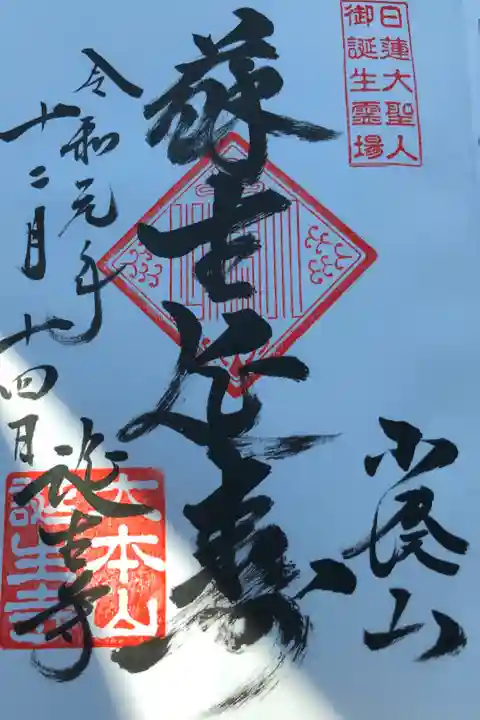 日蓮大聖人
御誕生霊場
小湊山
蘇生延壽
令和元年
十二月十四日
誕生寺
大本山
誕生寺